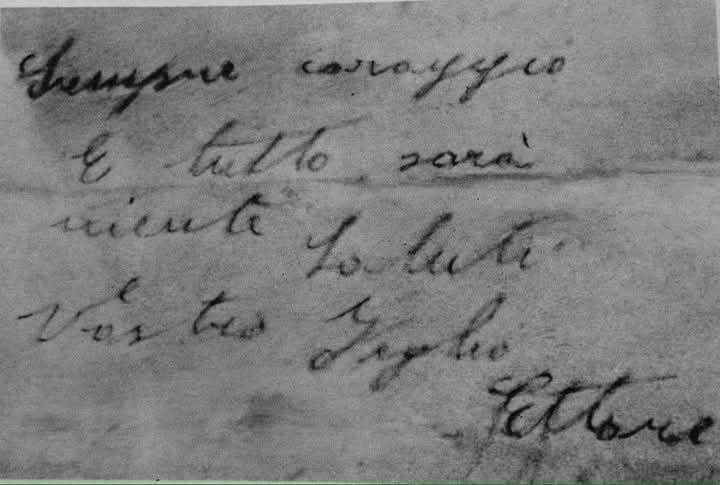 Sempre coraggio
E tutto sarà
niente Saluti
Vostro Figlio
Ettore